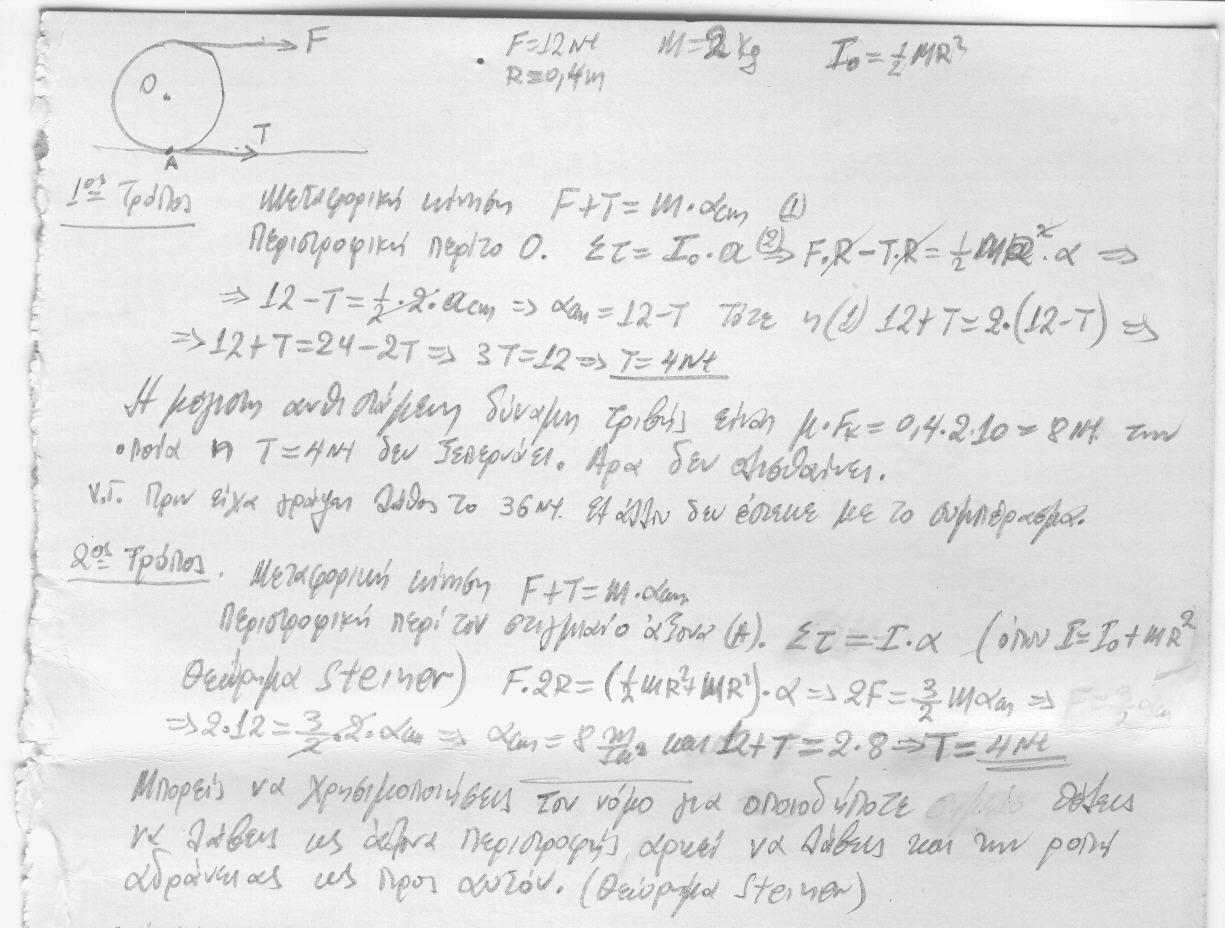 F
F=12Nt
m=2kg
I₀=½MR²
R=0,4m
O
T
A
1ος Τρόπος Μεταφορική κίνηση F+T=m·αcm (1)
Περιστροφική περί το O. Στ=I₀·α (2) ⇒ F·R−T·R=½MR²·α ⇒
⇒ 12−T=½·2·αcm ⇒ αcm=12−T Τότε η (1) 12+T=2·(12−T) ⇒
⇒ 12+T=24−2T ⇒ 3T=12 ⇒ T=4Nt
Η μέγιστη δύναμη τριβής είναι μ·Fκ=0,4·2·10=8Nt την
οποία η T=4Nt δεν ξεπερνάει. Άρα δεν ολισθαίνει.
Υ.Γ. Πριν είχα γράψει λάθος το 36Nt. Εξ άλλου δεν έστεκε με το συμπέρασμα.
2ος Τρόπος. Μεταφορική κίνηση F+T=m·αcm
Περιστροφική περί τον στιγμιαίο άξονα (A). Στ=I·α (όπου I=I₀+mR²
Θεώρημα Steiner) F·2R=(½mR²+mR²)·α ⇒ 2F=3/2 mαcm ⇒
⇒ 2·12=3/2·2·αcm ⇒ αcm=8 και 12+T=2·8 ⇒ T=4Nt
Μπορείς να χρησιμοποιήσεις τον νόμο για οποιοδήποτε σημείο θέλεις
να λάβεις ως άξονα περιστροφής, αρκεί να λάβεις και την ροπή
αδράνειας ως προς αυτόν. (Θεώρημα Steiner)